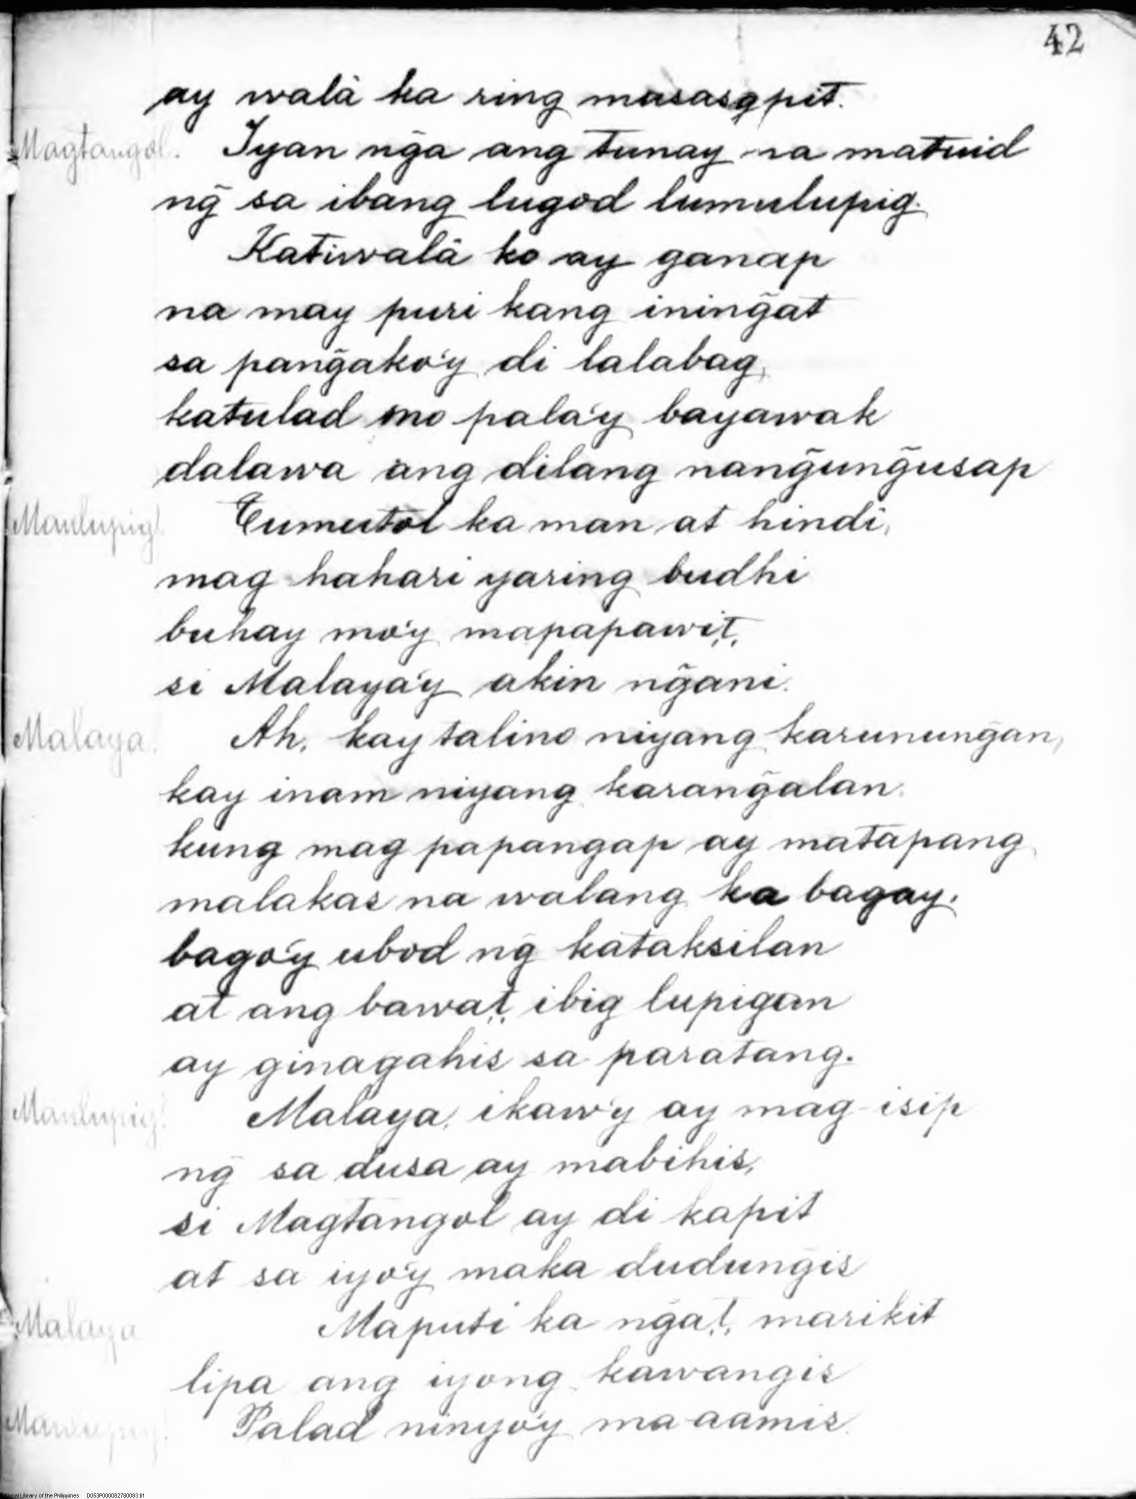 42
ay walâ ka ring masasapit.
Magtangol. Iyan ñga ang tunay na matuid
ng̃ sa ibang lugod lumulupig.
Katiwalâ ko ay ganap
na may puri kang ining̃at
sa pang̃ako'y di lalabag,
katulad mo pala'y bayawak
dalawa ang dilang nang̃ung̃usap
Manlupig. Tumutol ka man at hindî,
mag hahari yaring budhi
buhay mo'y mapapawi,t,
si Malaya'y akin ng̃ani.
Malaya. Ah, kay talino niyang karunung̃an,
kay inam niyang karang̃alan.
kung mag papangap ay matapang
malakas na walang ka bagay.
bago'y ubod ng̃ kataksilan
at ang bawa,t, ibig lupigan
ay ginagahis sa paratang.
Manlupig. Malaya, ikaw'y ay mag-isip
ng̃ sa dusa ay mabihis,
si Magtangol ay di kapit
at sa iyo'y maka dudung̃is
Malaya Maputi ka ng̃a,t, marikit
lipa ang iyong kawangis
Manlupig. Palad ninyo'y ma-aamis.
National Library of the Philippines